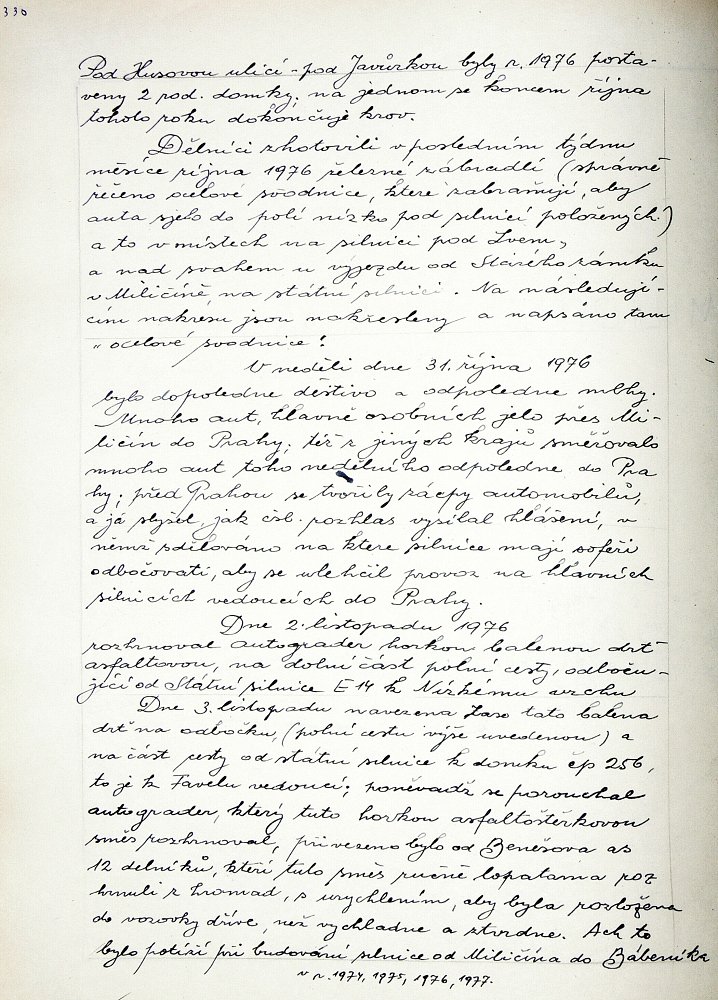 330
Pod Husovou ulicí - pod Javůrkou byly r. 1976 posta-
veny 2 rod. domky; na jednom se koncem října
tohoto roku dokončuje krov.
Dělníci zhotovili v posledním týdnu
měsíce října 1976 železné zábradlí (správně
řečeno ocelové svodnice, které zabraňují, aby
auta sjela do polí nízko pod silnicí položených)
a to v místech na silnici pod Lvem,
a nad svahem u výjezdu od Starého zámku
v Miličíně, na státní silnici. Na následují-
cím nákresu jsou nakresleny a napsáno tam
"ocelové svodnice!
V neděli dne 31. října 1976
bylo dopoledne deštivo a odpoledne mlhy.
Mnoho aut, hlavně osobních jelo přes Mi-
ličín do Prahy; též z jiných krajů směřovalo
mnoho aut toho nedělního odpoledne do Pra
hy; před Prahou se tvořily zácpy automobilů,
a já slyšel, jak čsl. rozhlas vysílal hlášení, v
němž sdělováno na které silnice mají šoféři
odbočovati, aby se ulehčil provoz na hlavních
silnicích vedoucích do Prahy.
Dne 2. listopadu 1976
rozhrnoval autograder horkou balenou drť
asfaltovou, na dolní část polní cesty, odboču-
jící od Státní silnice E 14 k Nízkému vrchu
Dne 3. listopadu navezena zase tato balena
drť na odbočku, (polní cestu výše uvedenou) a
na část cesty od státní silnice k domku čp 256,
to je k Favelu vedoucí; poněvadž se porouchal
autograder, který tuto horkou asfaltoštěrkovou
směs rozhrnoval, přivezeno bylo od Benešova as
12 dělníků, kteří tuto směs ručně lopatama roz
hrnuli z hromad, s urychlením, aby byla rozložena
do vozovky dříve, než vychladne a ztvrdne. Ach to
bylo potíží při budování silnice od Miličína do Báberníka
v r. 1974, 1975, 1976, 1977.